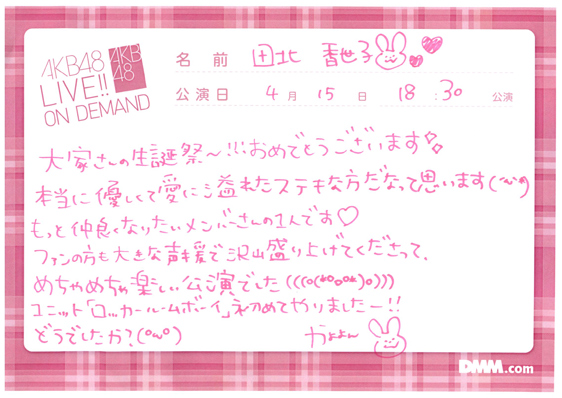 AKB48
LIVE!!
ON DEMAND
AKB
48
名前 田北 香世子
公演日 4月 15日 18:30 公演
大家さんの生誕祭〜!!!おめでとうございます
本当に優しくて愛に溢れたステキな方だなって思います(^ω^)
もっと仲良くなりたいメンバーさんの1人です♡
ファンの方も大きな声援で沢山盛り上げてくださって、
めちゃめちゃ楽しい公演でした(((o(*゚o゚*)o)))
ユニット「ロッカールームボーイ」初めてやりましたー!!
どうでしたか?(°ω°)
かよよん
DMM.com